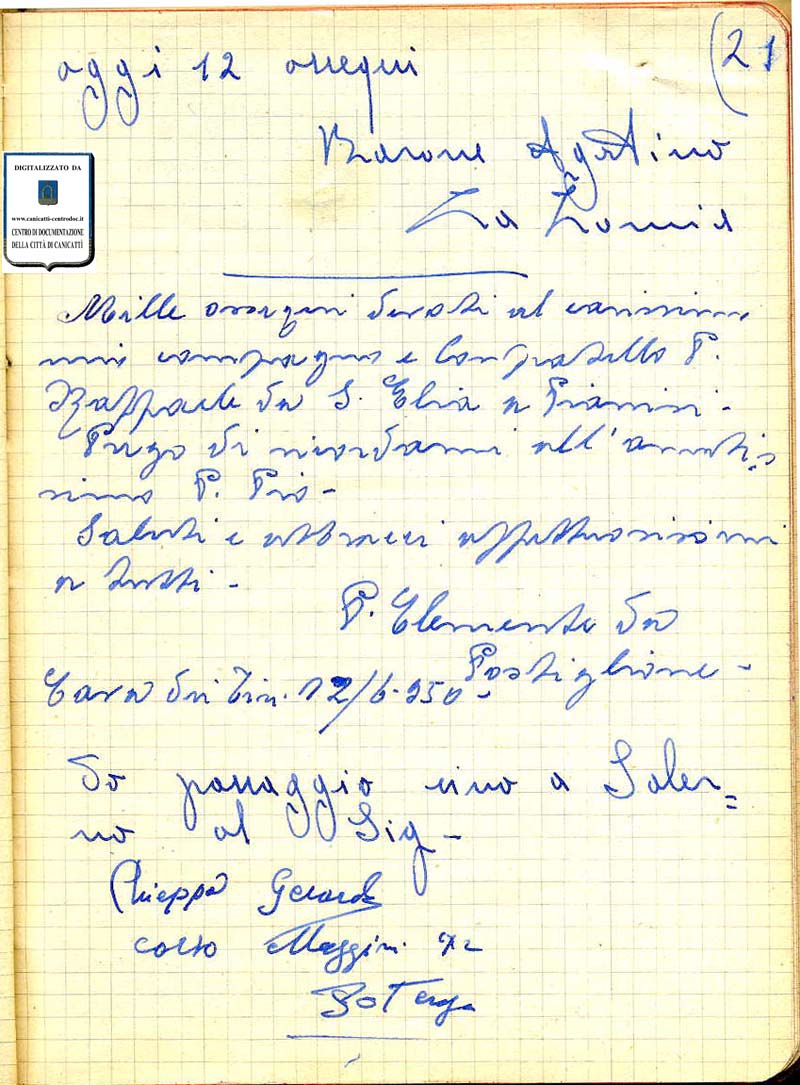 (21
oggi 12 ossequi
Barone Agostino
La Lomia
DIGITALIZZATO DA
www.canicatti-centrodoc.it
CENTRO DI DOCUMENTAZIONE
DELLA CITTÀ DI CANICATTÌ
Mille ossequi devoti al carissimo
mio compagno e Confratello P.
Raffaele da S. Elia a Pianisi -
Prego di ricordarmi all'amatis=
simo P. Pio -
Saluti e abbracci affettuosissimi
a tutti -
P. Clemente da
Postiglione -
Cava dei Tirr. 12/6-950 -
Do passaggio sino a Saler=
no al Sig -
Chieppa Gerardo
corso 72